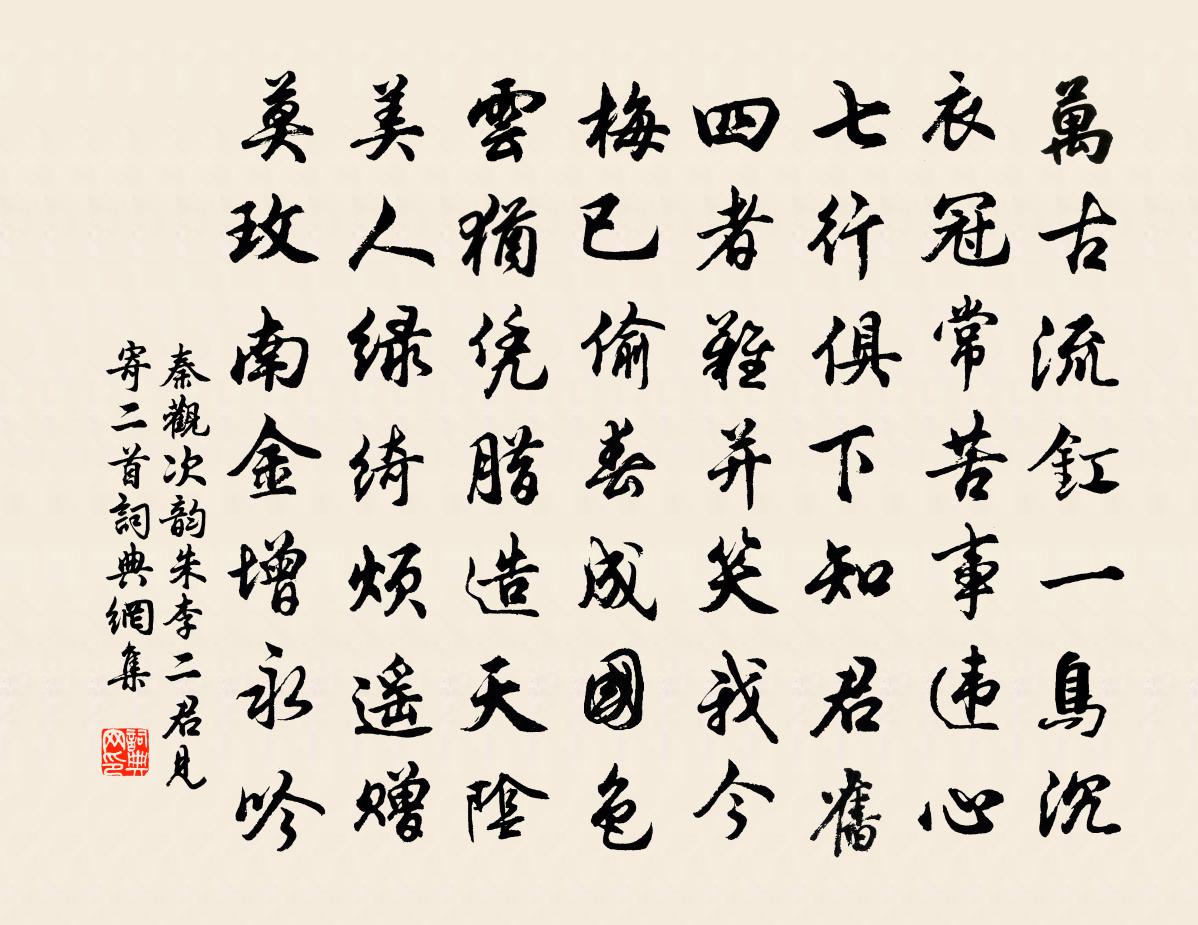 萬古流釭一鳥沉
衣冠常苦事违心
七行俱下知君舊
四者難并笑我今
梅已偷春成國色
雲猶凭腊造天陰
美人緑綺煩遥赠
莫玫南金增永吟
秦觀次韵朱李二君見
寄二首詞典網集
詞典
网印